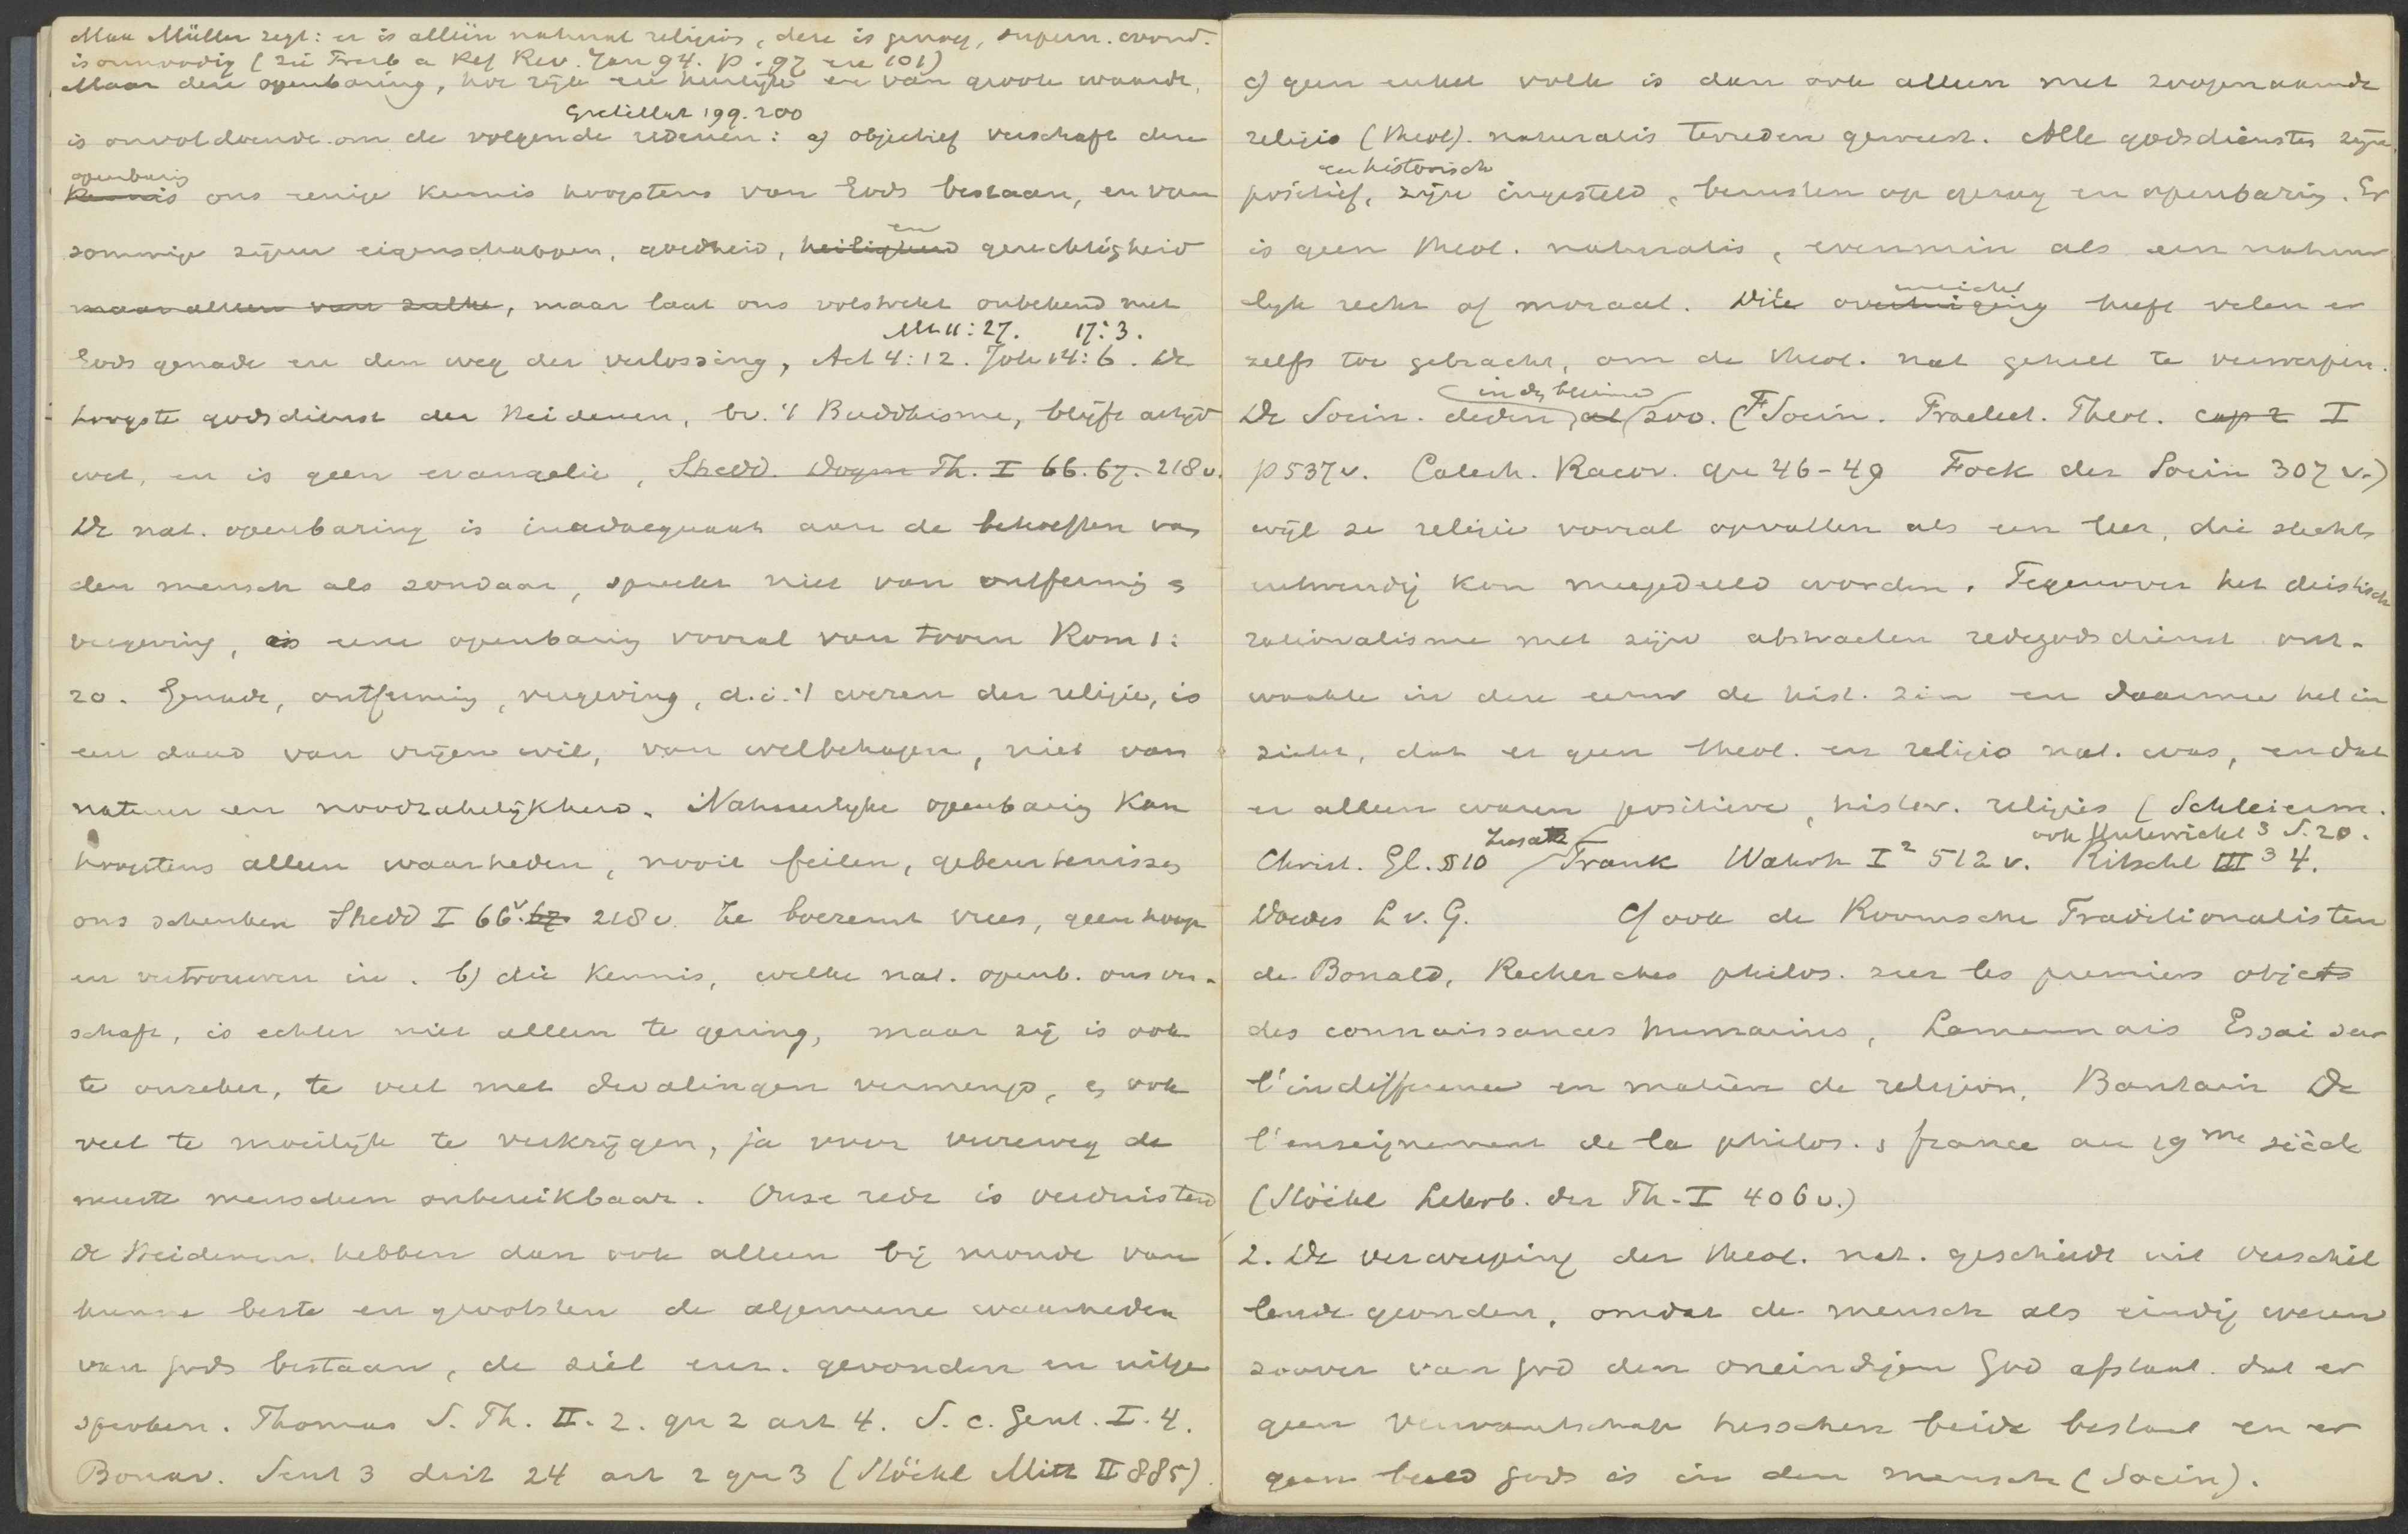 Max Müller zegt: er is alleen natural religion, deze is genoeg, supern. avond.
is onnoodig (zie Presb a Ref Rev. Jan 94. p. 97 en 101)
Maar deze openbaring, hoe rijk en heerlijk en van groote waarde,
Gretillat 199. 200
is onvoldoende om de volgende redenen: a) objectief verschaft deze
openbaring
kennis ons eenige kennis hoogstens van Gods bestaan, en van
en
sommige zijner eigenschappen, goedheid, heiligheid gerechtigheid
maar alleen van zulke, maar laat ons volstrekt onbekend met
Mt 11:27. 17:3.
Gods genade en den weg der verlossing, Act 4:12. Joh 14:6. De
hoogste godsdienst der Heidenen, bv. 't Buddhisme, blijft altijd
wet, en is geen evangelie, Shedd. Dogm Th. I 66. 67. 218 v.
De nat. openbaring is inadaequaat aan de behoeften van
den mensch als zondaar, spreekt niet van ontferming en
vergeving, is eene openbaring vooral van toorn Rom 1:
20. Genade, ontferming, vergeving, d.i. 't wezen der religie, is
een daad van vrijen wil, van welbehagen, niet van
natuur en noodzakelijkheid. Natuurlijke openbaring kan
hoogstens alleen waarheden, nooit feiten, gebeurtenissen
ons schenken Shedd I 66 v. 67 218 v. Ze boezemt vrees, geen hoop
en vertrouwen in. b) die kennis, welke nat. openb. ons ver-
schaft, is echter niet alleen te gering, maar zij is ook
te onzeker, te veel met dwalingen vermengd, en ook
veel te moeilijk te verkrijgen, ja voor verreweg de
meeste menschen onbereikbaar. Onze rede is verduisterd
De Heidenen hebben dan ook alleen bij monde van
hunne beste en grootsten de algemeene waarheden
van Gods bestaan, de ziel enz. gevonden en uitge
sproken. Thomas S. Th. II. 2. qu 2 art 4. S. c. Gent. I. 4.
Bonav. Sent 3 dist 24 art 2 qu 3 (Stöckl Mitt II 885).
c) geen enkel volk is dan ook alleen met zoogenaamde
religio (theol). naturalis tevreden geweest. Alle godsdiensten zijn
en historisch
positief, zijn ingesteld, berusten op gezag en openbaring. Er
is geen theol. naturalis, evenmin als een natuur
lijk recht of moraal. Dit overtuiging heeft velen er
zelfs toe gebracht, om de theol. nat geheel te verwerpen.
De Socin. deden al zoo. (F Socin. Praelect. Theol. cap 2 I
p 537 v. Catech. Racov. qu 46-49 Fock der Socin 307 v.)
wijl ze religie vooral opvatten als een leer, die slechts
uitwendig kon meegedeeld worden. Tegenover het deistisch
rationalisme met zijn abstracten redegodsdienst ont-
waakte in deze eeuw de hist. zin en daarmee het in
zicht, dat er geen theol. en religio nat. was, en dat
er alleen waren positieve, histor. religies (Schleierm.
Zusatz ook Unterricht 3 S. 20.
Christ. Gl. § 10 Frank Wahrh I 2 512 v. Ritschl III 3 4.
Doedes L v. G. Cf ook de Roomsche Traditionalisten
de Bonald, Recherches philos. sur les premiers objets
des connaissances humaines, Lamennais Essai sur
l'indifference en matière de religion, Bautain De
l'enseignement de la philos. en france au 19 me siècle
(Stöckl Lehrb. der Th. I 406 v.)
2. De verwerping der theol. nat. geschiedt uit verschil
lende gronden, omdat de mensch als eindig wezen
zoover van God den oneindigen God afstaat dat er
geen verwantschap tusschen beide bestaat en er
geen beeld Gods is in den mensch (Socin).